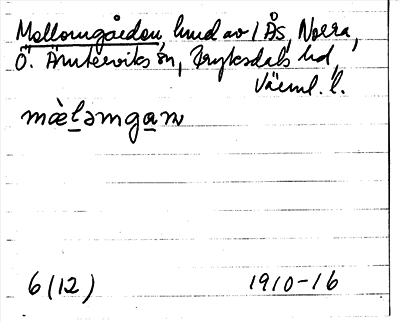 Mellomgården, hmd av 1 Ås, Norra,
Ö. Ämterviks sn, Fryksdals hd,
Värml. l.
mæ̀l̲əmga̲ɳ
6 (12) 1910-16